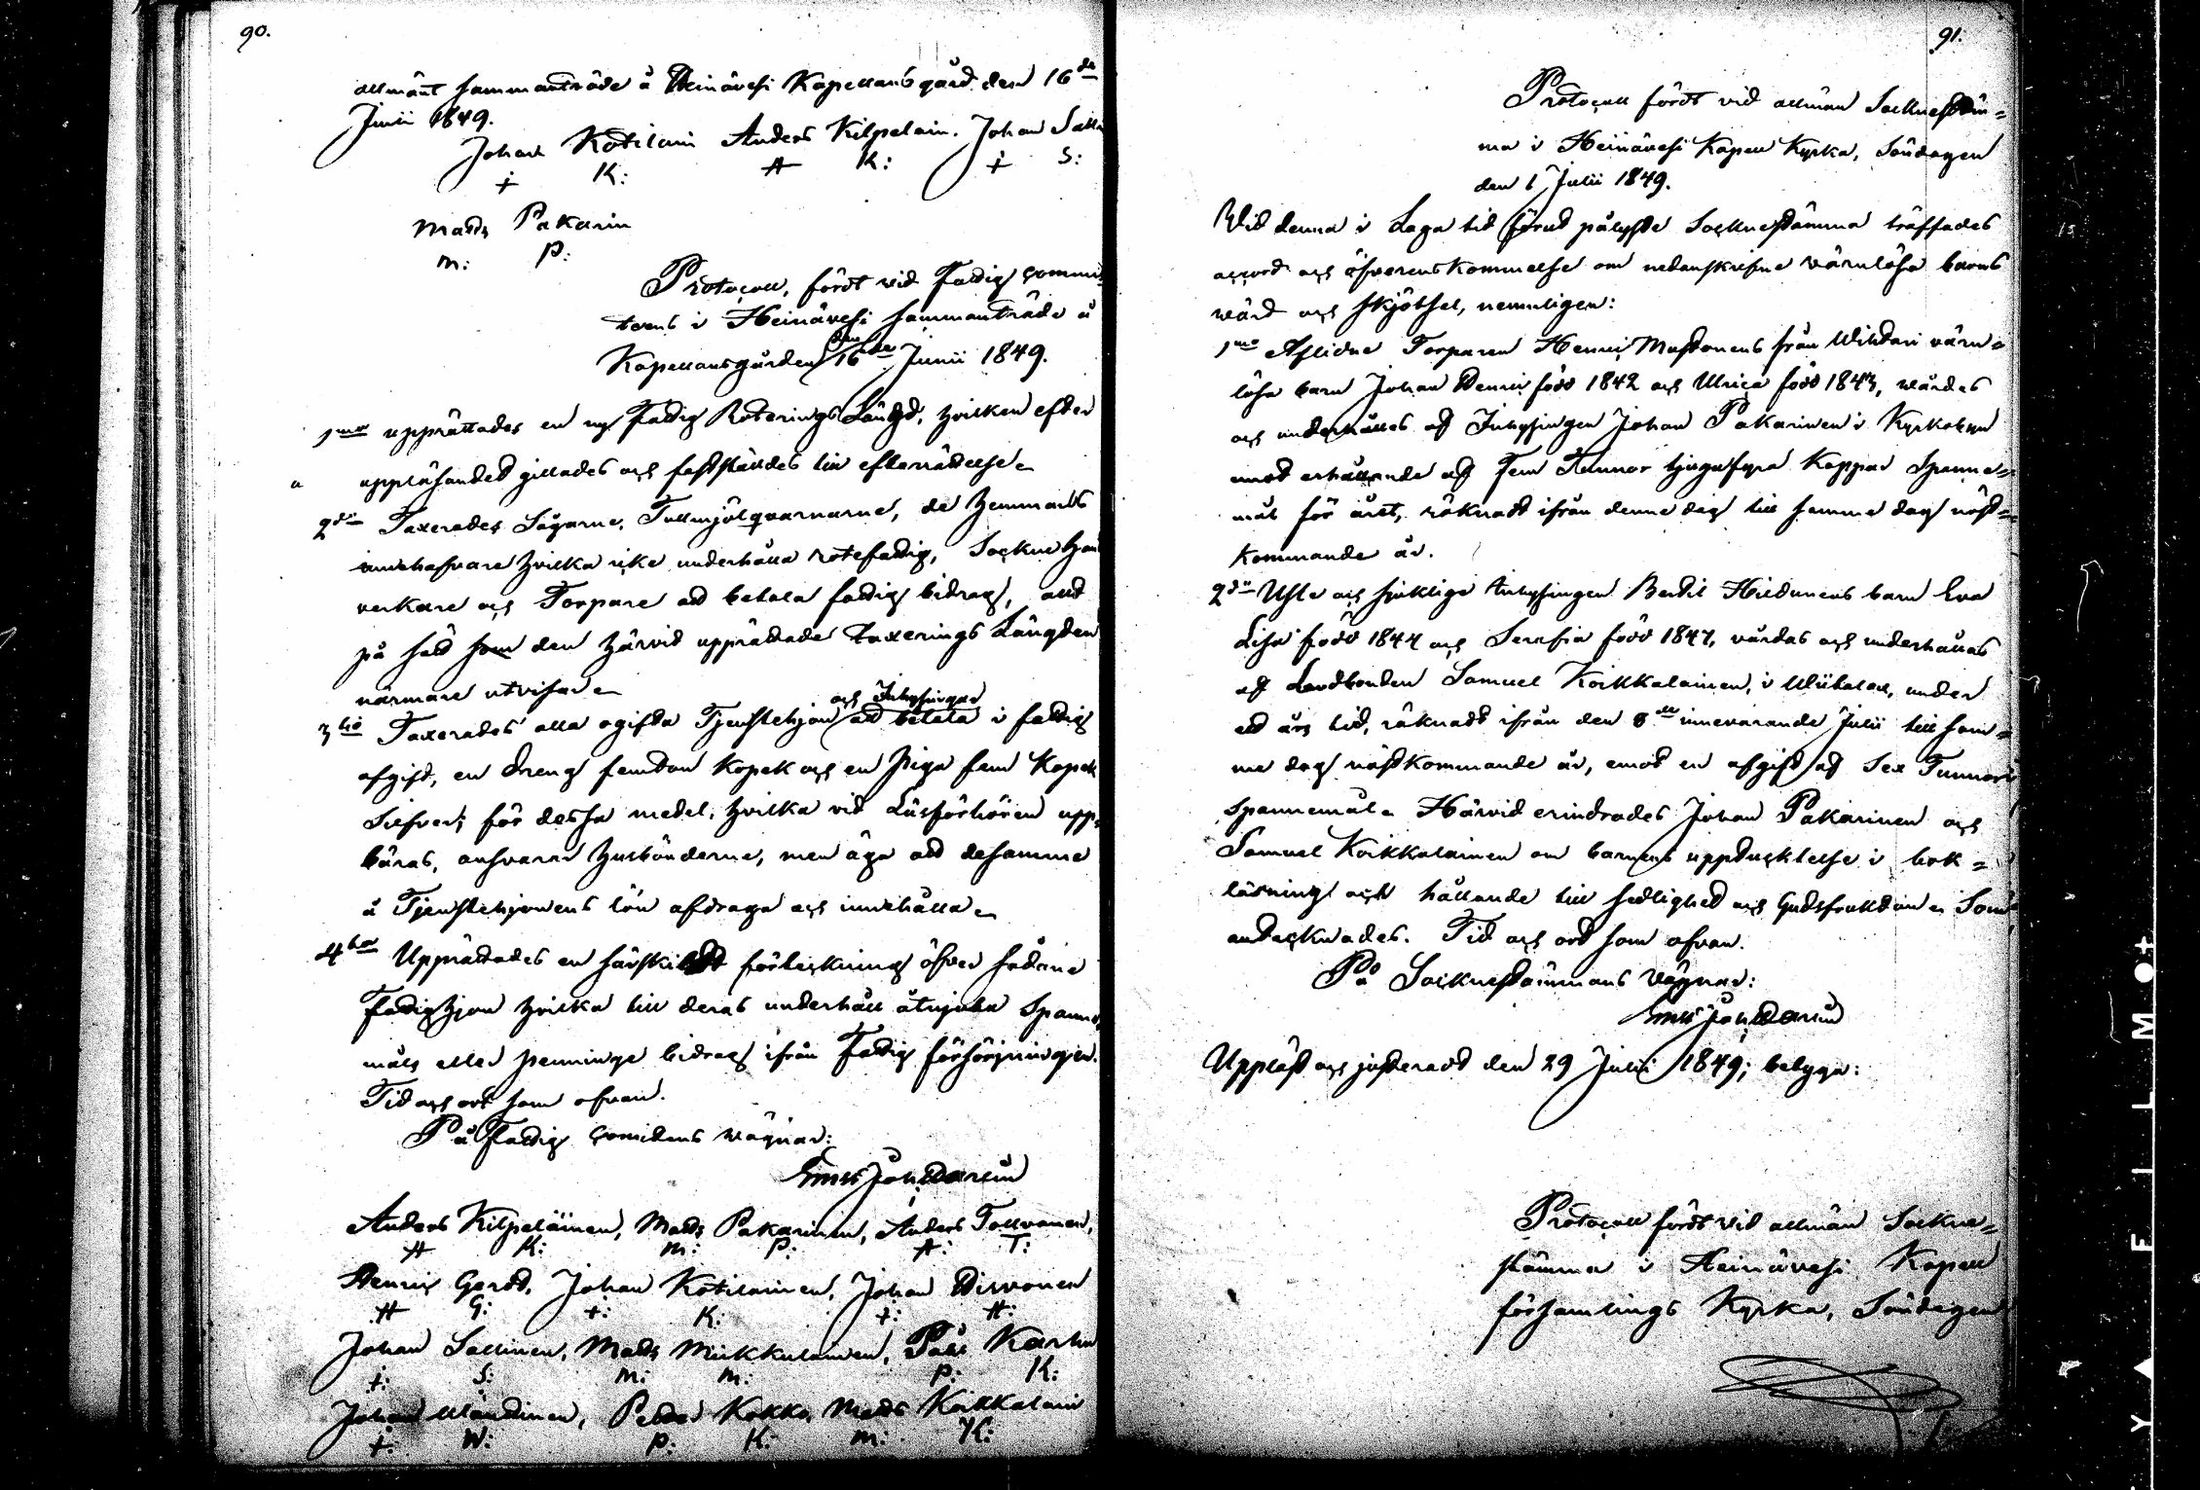 90.
allmänt sammanträde å Heinävesi Kapellansgård den 16de
Junii 1849.
Johan Kotilain Anders Kilpelain. Johan Salli
+ K: A K: + S:
Mads Pakarin
M: P:
Protocoll, fördt vid Fattig Commi-
teens i Heinävesi sammanträde å
Kapellansgården den 16de Junii 1849.
1mo upprättades en ny Fattig Roterings Längd, hvilken efter
uppläsandet gillades och fastställdes till efterrättelse.
2do Taxerades Sågarne, Tullmjölqvarnarne, de Hemmans
innehafvare hvilka icke underhålla rotefattig, Sockne han
verkare och Torpare att betala fattig bidrag, allt
på sätt som den härvid upprättade Taxerings Längden
närmare utvisar.
och Inhysingar
3tio Taxerades alla ogifta Tjenstehjon att betala i fattig
afgift, en Dreng femton Kopek och en Piga fem Kopek
Silfver; för dessa medel, hvilka vid Läsförhören upp-
bäras, ansvarar Husbönderne, men äga att desamme
å Tjenstehjonens lön afdraga och innehålla.
4to Upprättades en särskildt förteckning öfver sådane
Fattighjon hvilka till deras underhåll åtnjuta Spanne
måls eller penninge bidrag ifrån Fattig försörjningen.
Tid och ort som ofvan.
På Fattig Comitens vägnar:
Anders Kilpeläinen, Mads Pakarinen, Anders Tollvanen,
A K: M: P: A: T:
Henric Gerdt, Johan Kotilainen, Johan Hirvonen
H G: +: K: +: H:
Johan Sallinen, Mads Miikkulainen, Påhl Karhu
+: S: M: M: P: K:
Johan Wändinen, Petter Kokko, Mads Koikkalain
+: W: P: K: M: K:
91.
Protocoll fördt vid allmän Socknestäm-
ma i Heinävesi Kapell Kyrka, Söndagen
den 1 Julii 1849.
Wid denna i Laga tid förut pålyste Socknestämma träffades
accord och öfverenskommelse om nedanskrifne värnlösa barns
wård och skjötsel, nemnligen:
1mo Aflidne Torparen Henric Mustonens från Wihtari värn-
lösa barn Johan Henric född 1842 och Ulrica född 1843, wårdes
och underhålles af Inhysingen Johan Pakarinen i Kyrkobyn
emot erhållande af Fem Tunnor tjugufyra Kappar Spanne-
mål för året, räknadt ifrån denne dag till samme dag näst-
kommande år.
2do Usle och sjuklige Inhysingen Bertil Hiltunens barn Eva
Lisa född 1844 och Serafia född 1847, vårdas och underhållas
af Landbonden Samuel Koikkalainen, i under
ett års tid, räknadt ifrån den 8de innevarande Julii till sam-
me dag nästkommande år, emot en afgift af Sex Tunnor
spannemål. Härvid erindrades Johan Pakarinen och
Samuel Koikkalainen om barnens upptuchtelse i bok-
läsning och hållande till sedlighet och Gudsfruktan. Som
antecknades. Tid och ort som ofvan.
På Socknestämmans vägnar:
Uppläst och justeradt den 29 Julii 1849; betyga:
Protocoll fördt vid allmän Sockne-
stämma i Heinävesi Kapell
församlings Kyrka, Söndagen